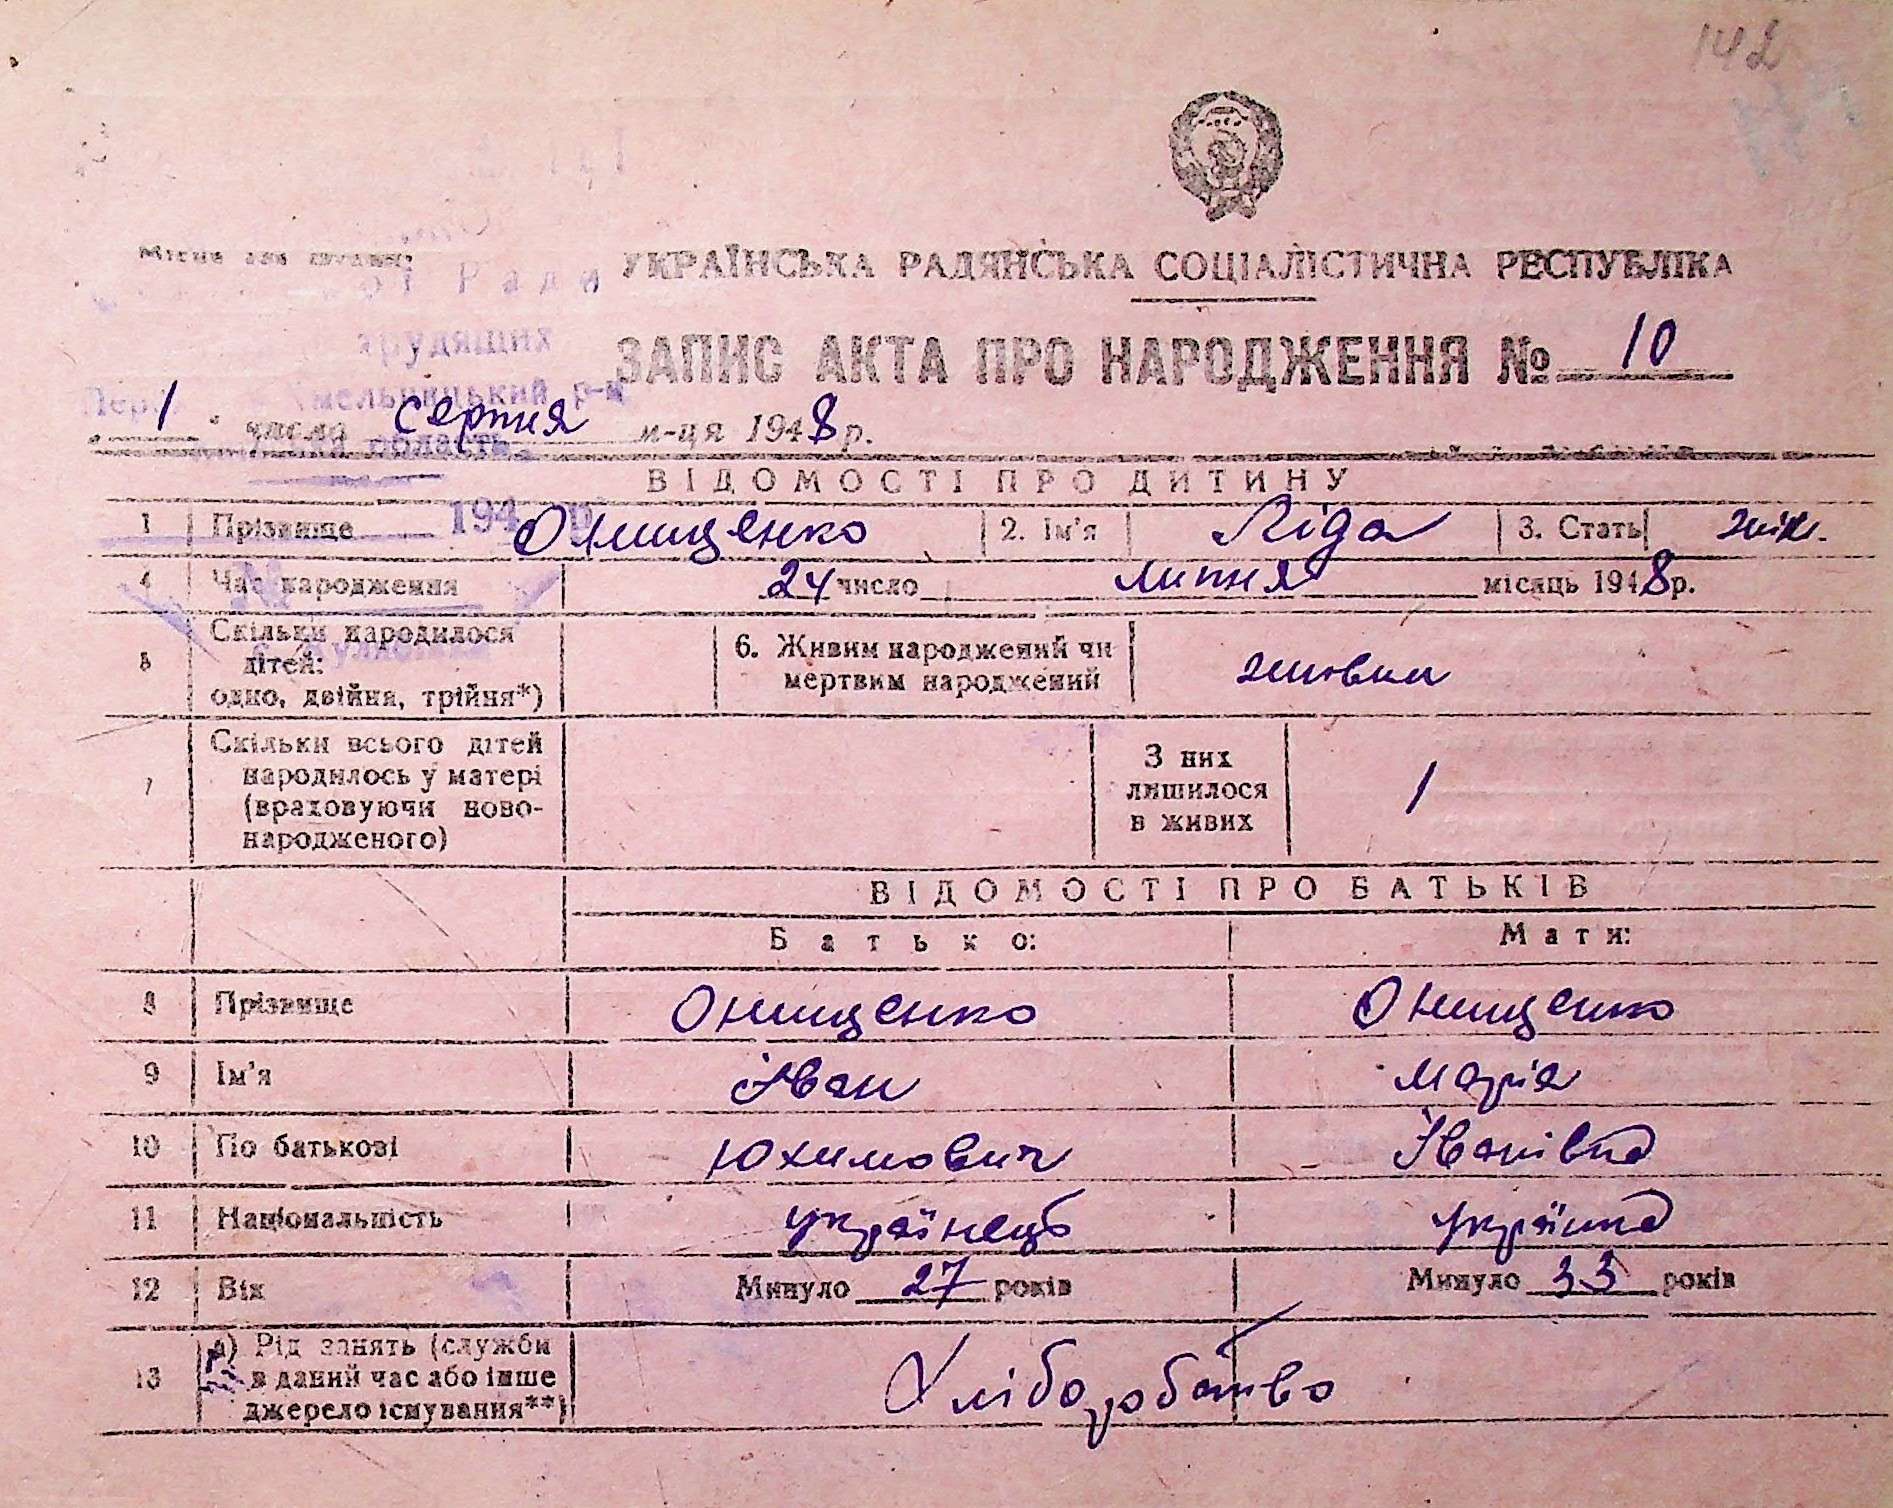 142
УКРАЇНСЬКА РАДЯНСЬКА СОЦІАЛІСТИЧНА РЕСПУБЛІКА
Ради
трудящих
ЗАПИС АКТА ПРО НАРОДЖЕННЯ № 10
р-н
1 числа серпня м-ця 1948 р.
область
ВІДОМОСТІ ПРО ДИТИНУ
194 р.
1 Прізвище Онищенко 2. Ім'я Ліда 3. Стать жін.
4 Час народження 24 число липня місяць 1948 р.
5 Скільки народилося дітей: одно, двійня, трійня*) 6. Живим народжений чи мертвим народжений живим
7 Скільки всього дітей народилось у матері (враховуючи новонародженого) З них лишилося в живих 1
ВІДОМОСТІ ПРО БАТЬКІВ
Батько: Мати:
8 Прізвище Онищенко Онищенко
9 Ім'я Іван Марія
10 По батькові Юхимович Іванівна
11 Національність українець українка
12 Вік Минуло 27 років Минуло 33 років
13 а) Рід занять (служби в даний час або інше джерело існування**) Хліборобство